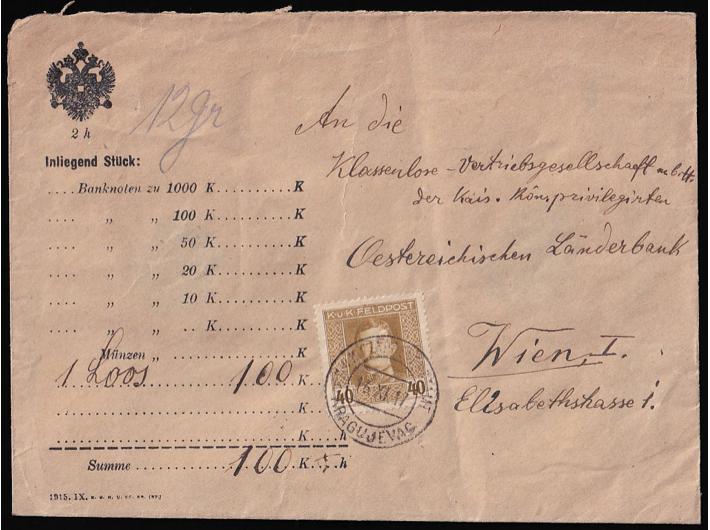 2 h
12 gr
Inliegend Stück:
.... Banknoten zu 1000 K.......... K
.... „ „ 100 K.......... K
.... „ „ 50 K.......... K
.... „ „ 20 K.......... K
.... „ „ 10 K.......... K
.... „ „ .. K.......... K
Münzen „
1 Loos 100 K. h
K. h
K. h
Summe 100 K h
1915. IX.
An die
Klassenlose-Vertriebsgesellschaft m.b.H.
der Kais. Kön. privilegirten
Oestereichischen Länderbank
Wien, I.
Elisabethstrasse 1.
K.u.K. FELDPOST
40 40
KRAGUJEVAC